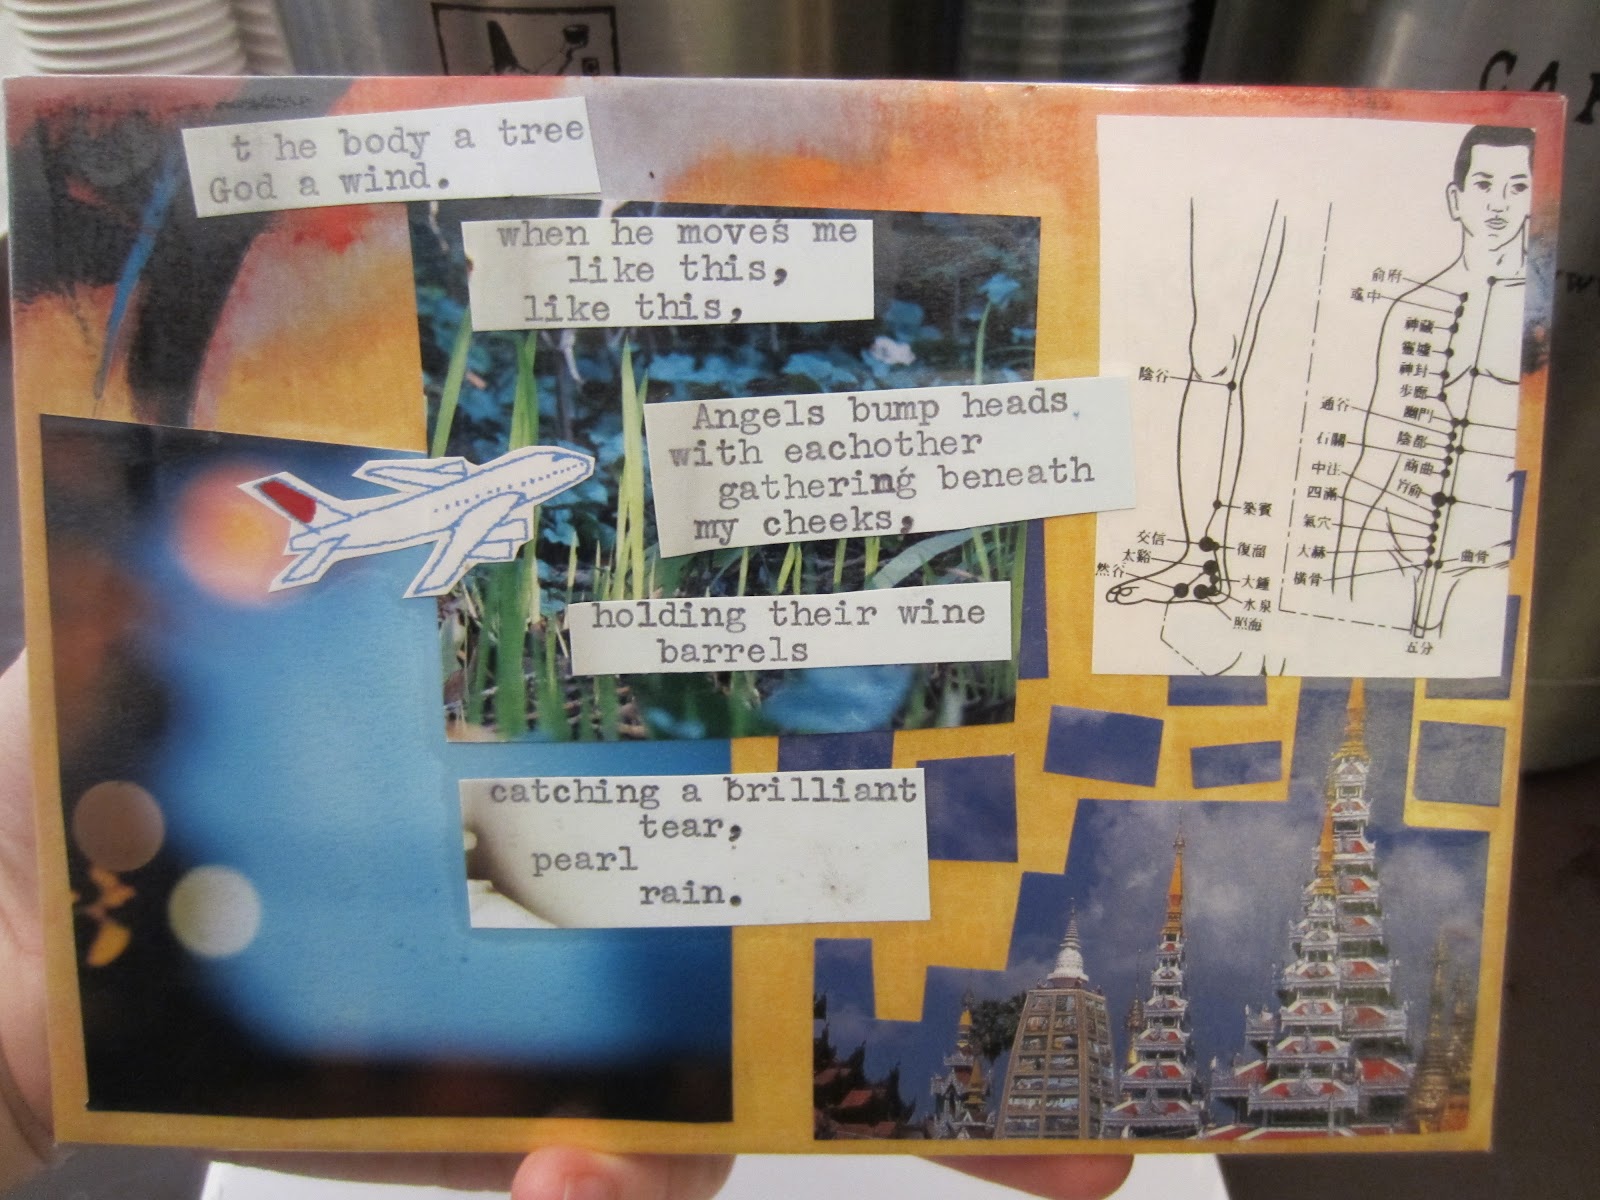 t he body a tree
God a wind.
when he moves me
like this,
like this,
Angels bump heads,
with eachother
gathering beneath
my cheeks,
holding their wine
barrels
catching a brilliant
tear,
pearl
rain.
陰谷
築賓
交信
復溜
太谿
然谷
大鍾
水泉
照海
俞府
彧中
神藏
靈墟
神封
步廊
通谷
幽門
陰都
石關
商曲
中注
肓俞
四滿
氣穴
大赫
橫骨
曲骨
五分
CAF